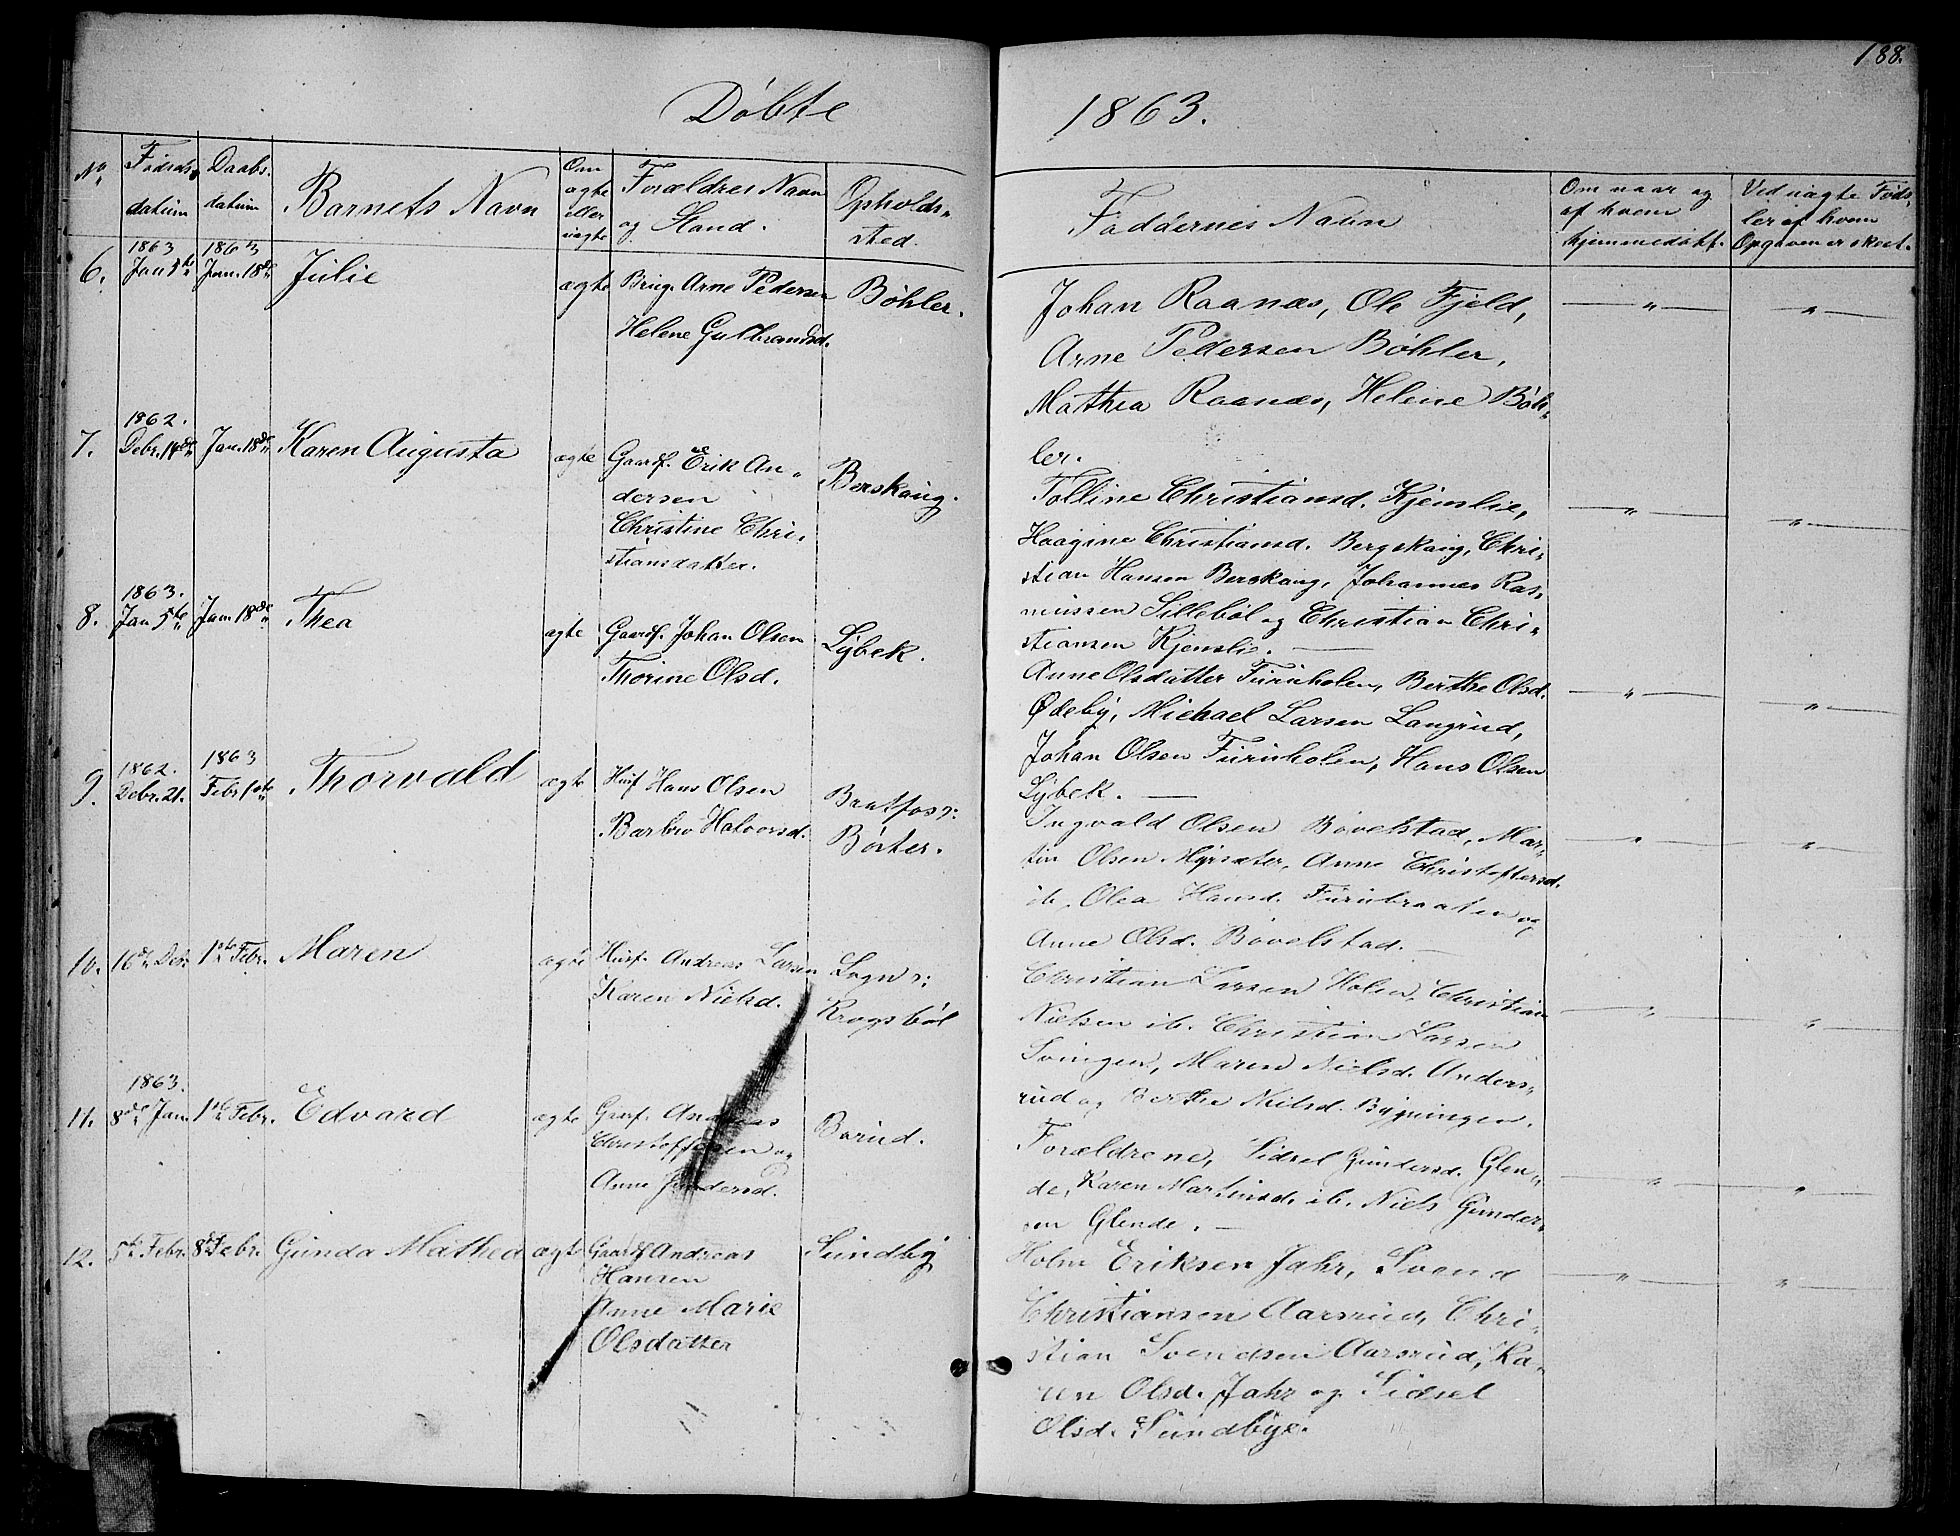 188.
Døbte
1863.
No.
Födsels
datum
Daabs.
datum
Barnets Navn
Om
ægte
eller
uægte
Forældres Navn
og Stand.
Opholds-
sted.
Faddernes Navn
Om naar og
af hvem
hjemmedøbt.
Ved uægte Föds-
ler af hvem
Opgaven er skeet.
6.
1863
1863
Jan. 18de
Julie
ægte
Brug. Arne Pedersen
Helene Gulbrandsd.
Bøhler.
Johan Raanæs, Ole Fjeld,
Arne Pedersen Bøhler,
Mathea Raanæs, Helene Böh-
ler.
7.
1862.
Debr. 14de
Jan. 18de
Karen Augusta
ægte
Gaardf. Erik An-
dersen
Christine Chri-
stiansdatter.
Berskaug.
Tolline Christiansd. Kjemlie,
Haagine Christiansd. Bergskaug, Chri-
stian Hansen Berskaug, Johannes Ras-
mussen Sillebøl og Christian Chri-
stiansen Kjenslie.
8.
1863.
Jan 5te
Jan. 18de
Thea
ægte
Gaardf. Johan Olsen
Thorine Olsd.
Lybek.
Anne Olsdatter Furuholen, Berthe Olsd.
Ødeby, Michael Larsen Langrud,
Johan Olsen Furuholen, Hans Olsen
Lybek.
9.
1862.
Debr. 21.
1863
Febr 1ste
Thorvald
ægte
Husf Hans Olsen
Barbro Halvorsd.
Bratfos:
Børter.
Ingvald Olsen Bovelstad, Mar-
tin Olsen Myrsæter, Anne Christoffersd.
ib, Olea Hansd. Furubraaten og
Anne Olsd. Bovelstad.
10.
16de Debr
1ste Febr.
Maren
ægte
Husf. Andreas Larsen
Karen Nielsd.
Sogn
Krogsbøl
Christian Larsen Holen, Christian
Nielsen ib. Christian Larsen
Svingen, Maren Nielsd. Anders-
rud og Berthe Nielsd. Bygningen.
11.
1863.
8de Jan.
1ste Febr.
Edvard
ægte
Andreas
Christoffersen og
Anne Gundersd.
Borud.
Forældrene, Sidsel Gundersd. Glen-
de, Karen Martinsd. ib. Niels Gunder-
sen Glende.
12.
5te Febr.
8de Febr.
Gunda Mathea
ægte
Gaardf Andreas
Hansen
Anne Marie
Olsdatter
Sundby
Holm Eriksen Jahr, Svend
Christiansen Aarsrud, Chri-
stian Svendsen Aarsrud, Ka-
ren Olsd. Jahr og Sidsel
Olsd. Sundbye.